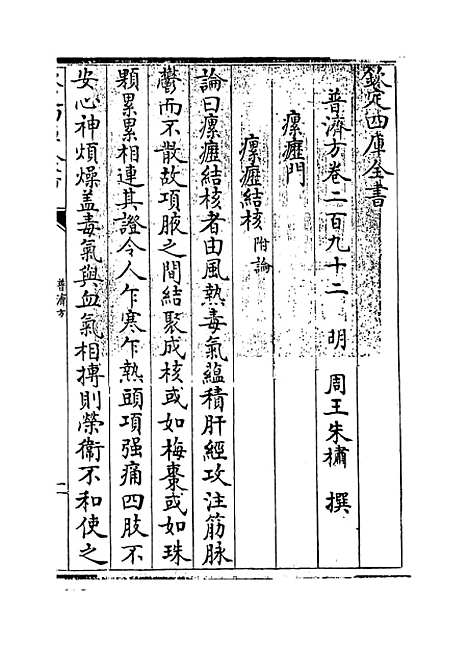 欽定四庫全書
普濟方卷二百九十二　明　周王朱橚　撰
瘰癧門
瘰癧結核附論
論曰瘰癧結核者由風熱毒氣藴積肝經攻注筋脉
鬱而不散故項腋之間結聚成核或如梅棗或如珠
顆累累相連其證令人乍寒乍熱頭項强痛四肢不
安心神煩燥盖毒氣與血氣相摶則榮衞不和使之
普濟方